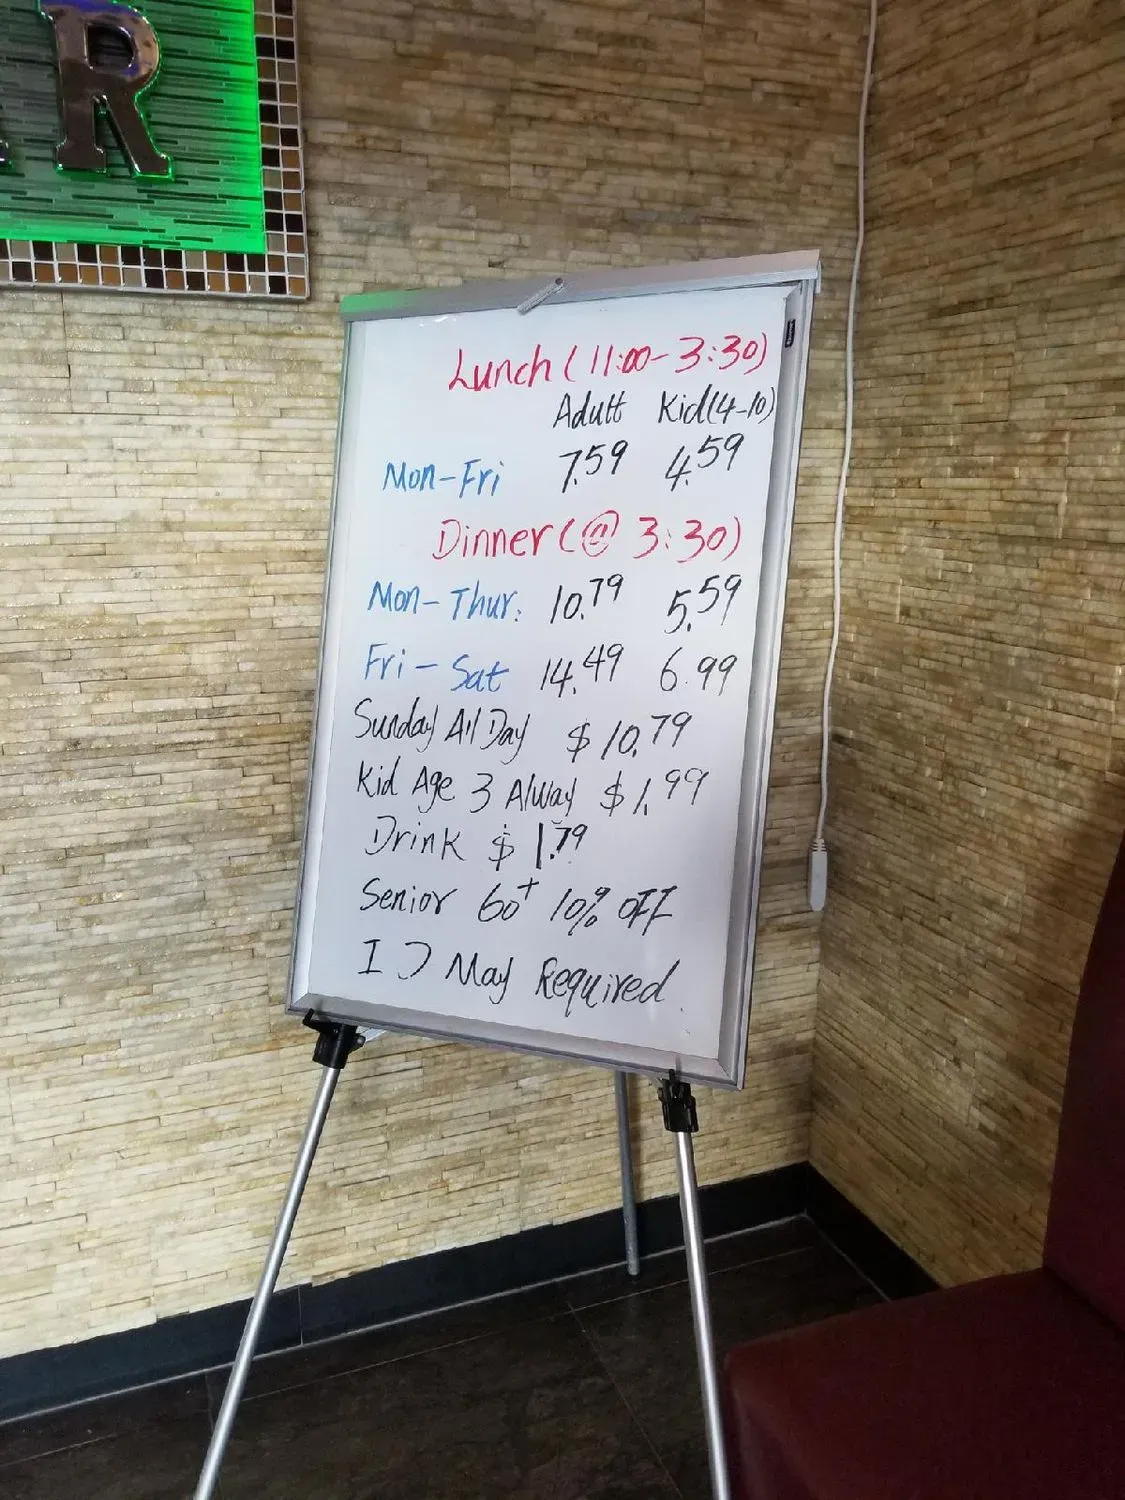 R
Lunch (11:00-3:30)
Adult Kid(4-10)
Mon-Fri 7.59 4.59
Dinner (@ 3:30)
Mon-Thur. 10.79 5.59
Fri-Sat 14.49 6.99
Sunday All Day $10.79
Kid Age 3 Alway $1.99
Drink $1.79
Senior 60+ 10% OFF
ID May Required